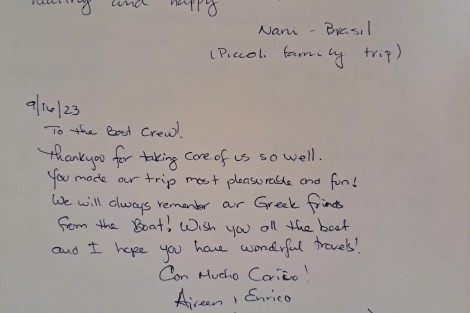 and happy
Nani - Brasil
(Piccoli family trip)
9/16/23
To the Best Crew!
Thankyou for taking care of us so well.
You made our trip most pleasurable and fun!
We will always remember our Greek friends
from the Boat! Wish you all the best
and I hope you have wonderful travels!
Con Mucho Cariño!
Aireen, Enrico